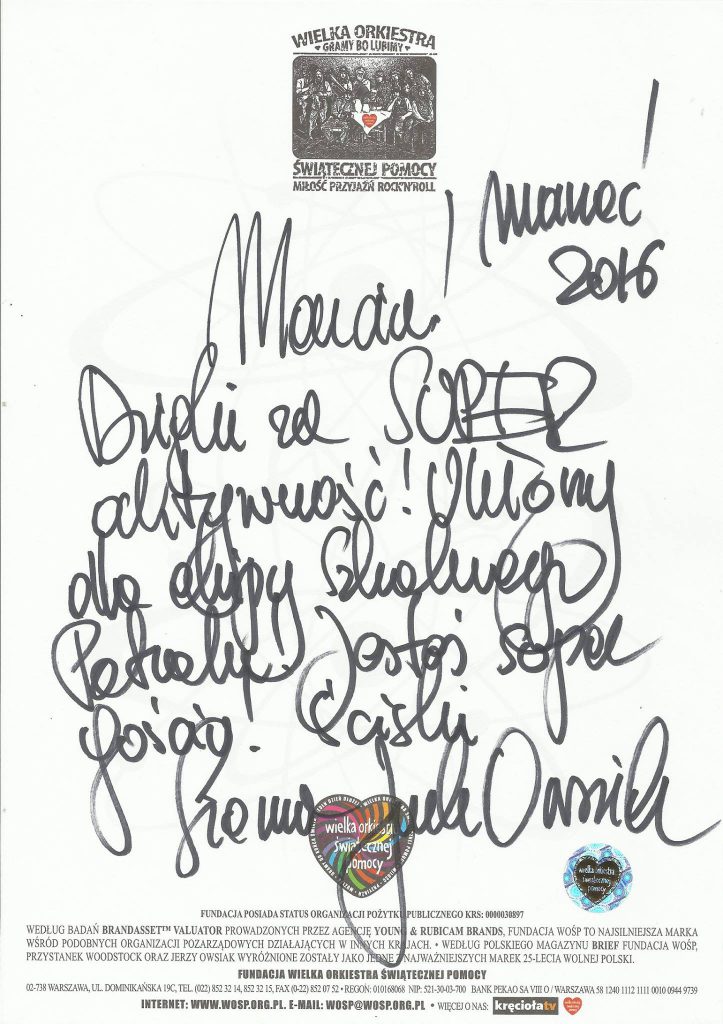 WIELKA ORKIESTRA
GRAMY BO LUBIMY
ŚWIĄTECZNEJ POMOCY
MIŁOŚĆ PRZYJAŹŃ ROCK'N'ROLL
marzec
2016
Marcin!
Dzięki za SUPER
aktywność! Ukłony
dla ekipy Szkolnego
Patrolu. Jesteś super
gościu! Ściski
Siema Jurek Owsiak
wielka orkiestra
świątecznej
pomocy
wielka orkiestra
świątecznej
pomocy
FUNDACJA POSIADA STATUS ORGANIZACJI POŻYTKU PUBLICZNEGO KRS: 0000030897
WEDŁUG BADAŃ BRANDASSET™ VALUATOR PROWADZONYCH PRZEZ AGENCJĘ YOUNG & RUBICAM BRANDS, FUNDACJA WOŚP TO NAJSILNIEJSZA MARKA
WŚRÓD PODOBNYCH ORGANIZACJI POZARZĄDOWYCH DZIAŁAJĄCYCH W INNYCH KRAJACH. • WEDŁUG POLSKIEGO MAGAZYNU BRIEF FUNDACJA WOŚP,
PRZYSTANEK WOODSTOCK ORAZ JERZY OWSIAK WYRÓŻNIONE ZOSTAŁY JAKO JEDNE Z NAJWAŻNIEJSZYCH MAREK 25-LECIA WOLNEJ POLSKI.
FUNDACJA WIELKA ORKIESTRA ŚWIĄTECZNEJ POMOCY
02-738 WARSZAWA, UL. DOMINIKAŃSKA 19C, TEL. (022) 852 32 14, 852 32 15, FAX (0-22) 852 07 52 • REGON: 010168068 NIP: 521-30-03-700 BANK PEKAO SA VIII O / WARSZAWA 58 1240 1112 1111 0010 0944 9739
INTERNET: WWW.WOSP.ORG.PL. E-MAIL: WOSP@WOSP.ORG.PL • WIĘCEJ O NAS: kręciołatv